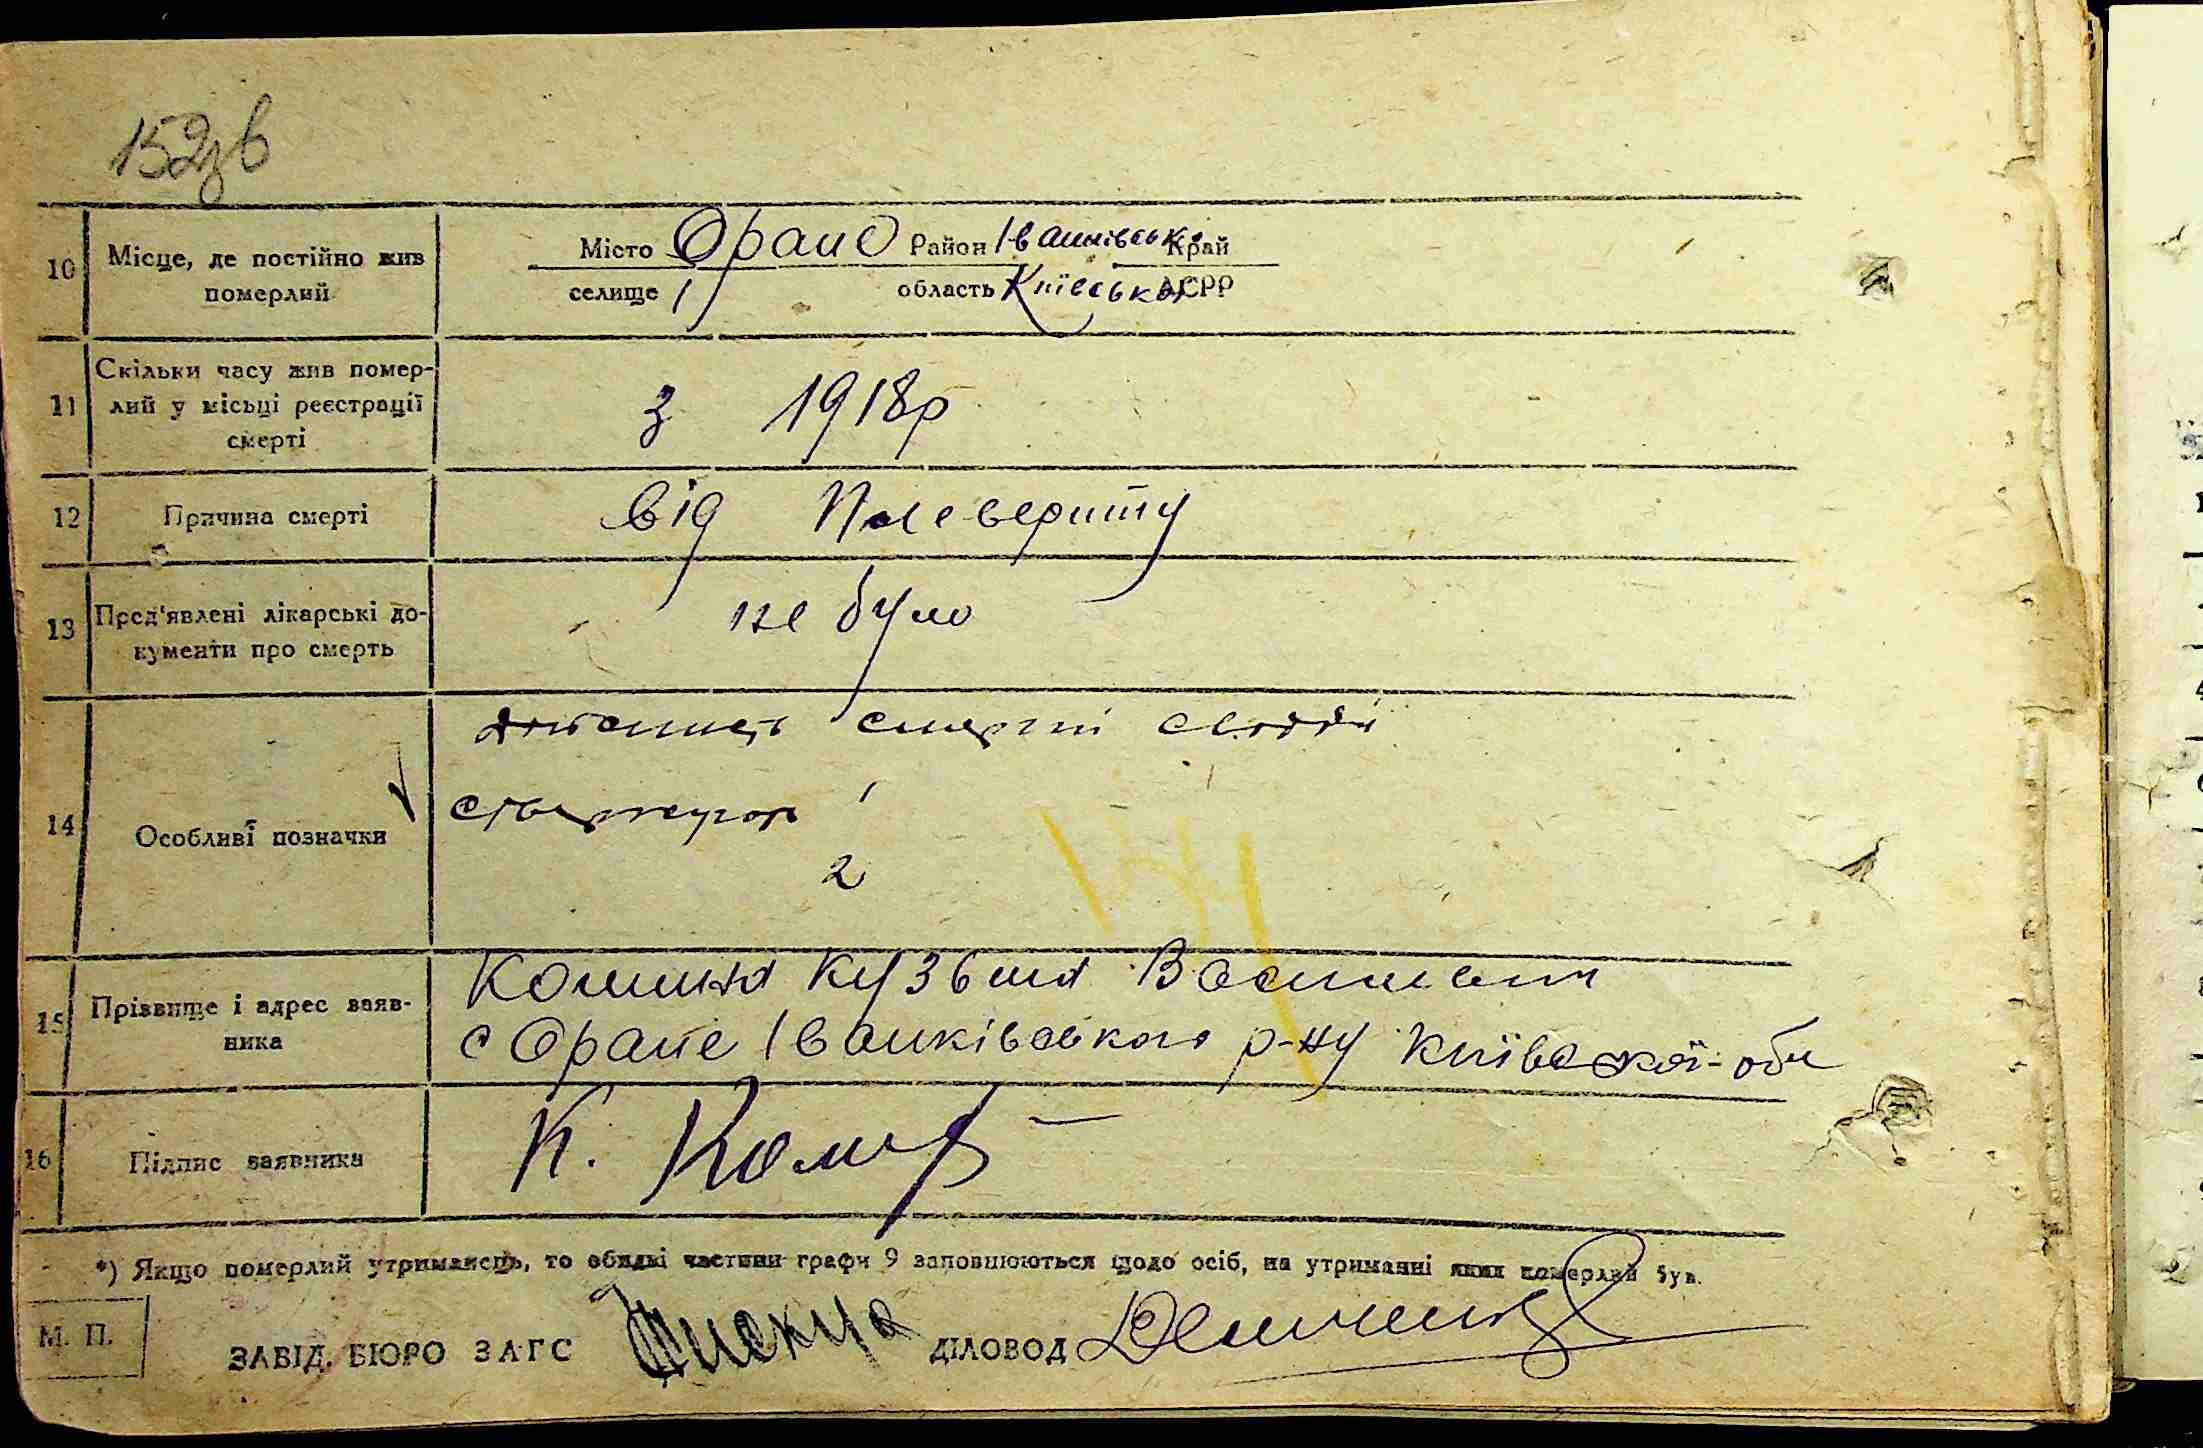 152зв
10 Місце, де постійно жив померлий
Місто Оране Район Іванківськ Край
селище область Київська АСРР
11 Скільки часу жив помер-
лий у місьці реєстрації
смерті
з 1918р
12 Причина смерті
від Плеверіту
13 Пред'явлені лікарські до-
кументи про смерть
не було
14 Особливі позначки
смерті
1
2
15 Прізвище і адрес заяв-
ника
Кузьма
с Оране Іванківського р-ну Київської обл
16 Підпис заявника
К.
*) Якщо померлий утриманець, то обидві частини графи 9 заповнюються щодо осіб, на утриманні яких померлий був.
М. П.
ЗАВІД. БЮРО ЗАГС ДІЛОВОД